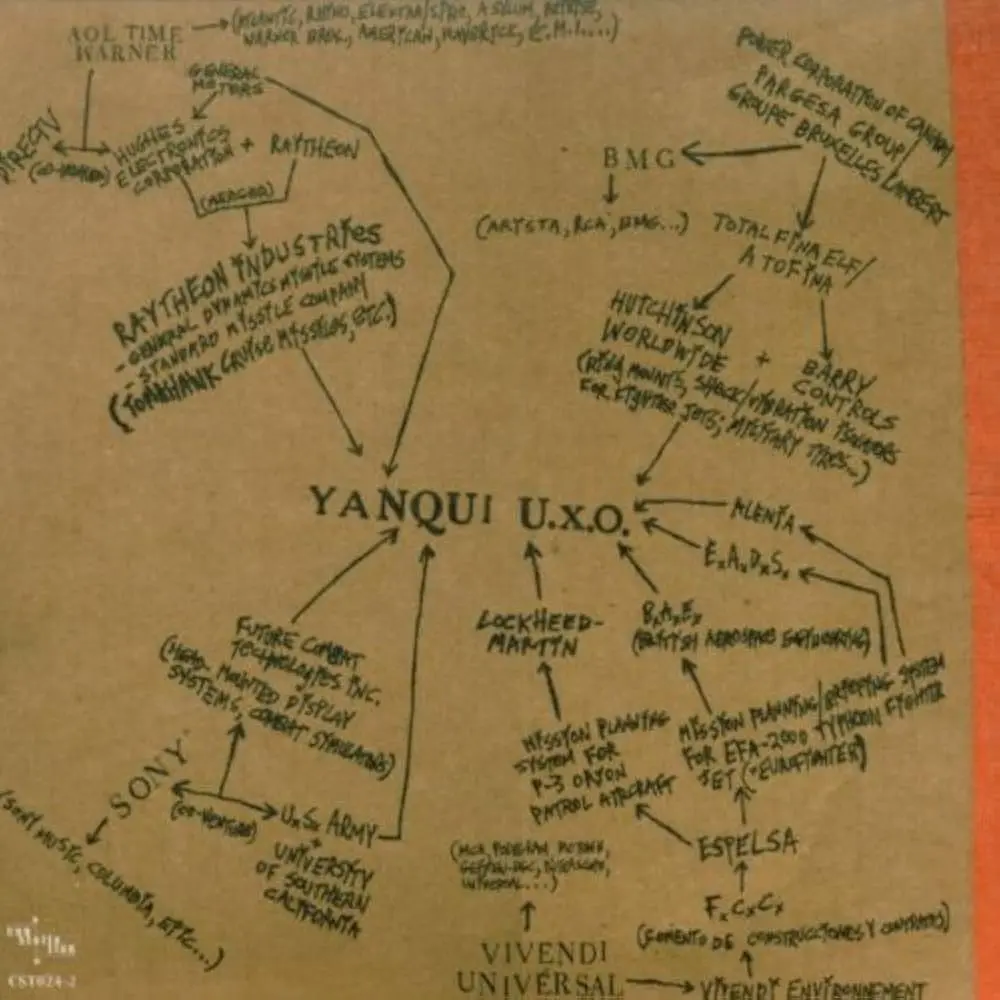 AOL TIME
WARNER
(ATLANTIC, RHINO, ELEKTRA/SIRE, ASYLUM, REPRISE,
WARNER BROS., AMERICAN, MAVERICK, E.M.I....)
GENERAL
MOTORS
DIRECTV
(CO-VENTURE)
HUGHES
ELECTRONICS
CORPORATION
+
RAYTHEON
(MERGER)
RAYTHEON INDUSTRIES
- GENERAL DYNAMICS MISSILE SYSTEMS
- STANDARD MISSILE COMPANY
(TOMAHAWK CRUISE MISSILES, ETC.)
POWER CORPORATION OF CANADA/
PARGESA GROUP/
GROUPE BRUXELLES LAMBERT
BMG
(ARISTA, RCA, BMG...)
TOTAL FINA ELF/
ATOFINA
HUTCHINSON
WORLDWIDE
+
BARRY
CONTROLS
MOUNTS, SHOCK/VIBRATION ISOLATORS
FOR FIGHTER JETS; MILITARY TIRES...)
YANQUI U.X.O.
ALENIA
E.A.D.S.
LOCKHEED-
MARTIN
B.A.E.
(BRITISH AEROSPACE ENGINEERING)
FUTURE COMBAT
TECHNOLOGIES INC.
(HEAD-MOUNTED DISPLAY
SYSTEMS, COMBAT SIMULATORS)
MISSION PLANNING
SYSTEM FOR
P-3 ORION
PATROL AIRCRAFT
MISSION PLANNING/BRIEFING SYSTEM
FOR EFA-2000 TYPHOON FIGHTER
JET (EUROFIGHTER)
SONY
(CO-VENTURE)
U.S. ARMY
+
UNIVERSITY
OF SOUTHERN
CALIFORNIA
(SONY MUSIC, COLUMBIA, EPIC...)
ESPELSA
F.C.C.
(FOMENTO DE CONSTRUCCIONES Y CONTRATAS)
(MCA, POLYGRAM, MOTOWN,
GEFFEN-DGC, INTERSCOPE,
UNIVERSAL...)
VIVENDI
UNIVERSAL
VIVENDI ENVIRONNEMENT
CST024-2